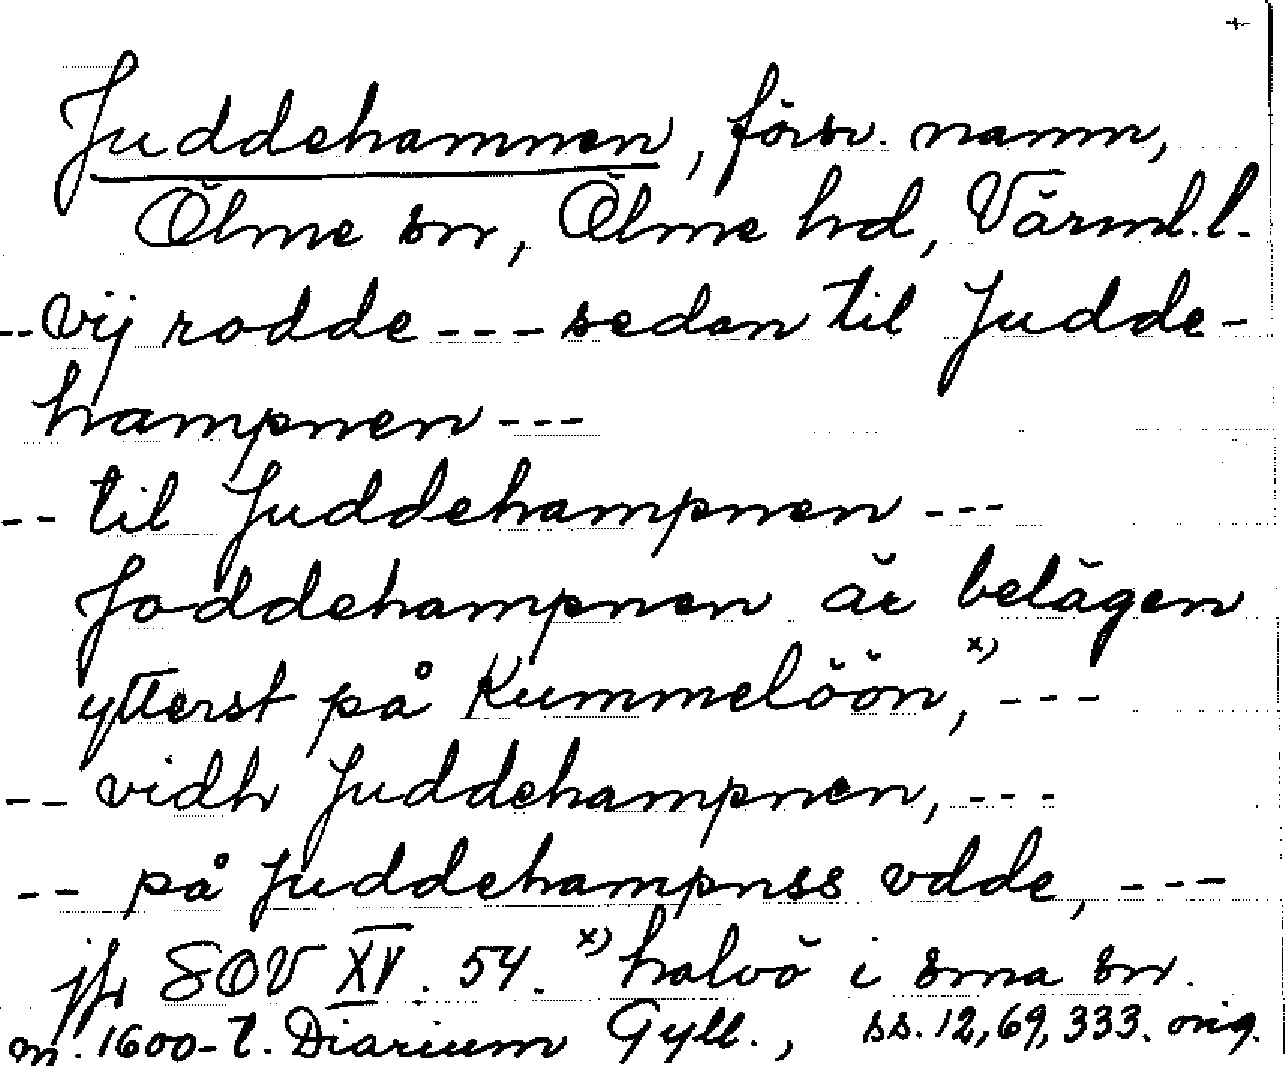 +
Juddehamnen, försv. namn,
Ölme sn, Ölme hd, Värml. l.
-- vij rodde --- sedan til Judde-
hampnen ---
-- til Juddehampnen ---
Joddehampnen är belägen
ytterst på Kummelöön, x) ---
-- vidh Juddehampnen, ---
-- på Juddehampnss vdde, ---
jfr SOV XV. 54. x) halvö i sma sn.
m. 1600-t. Diarium Gyll., ss. 12, 69, 333. orig.